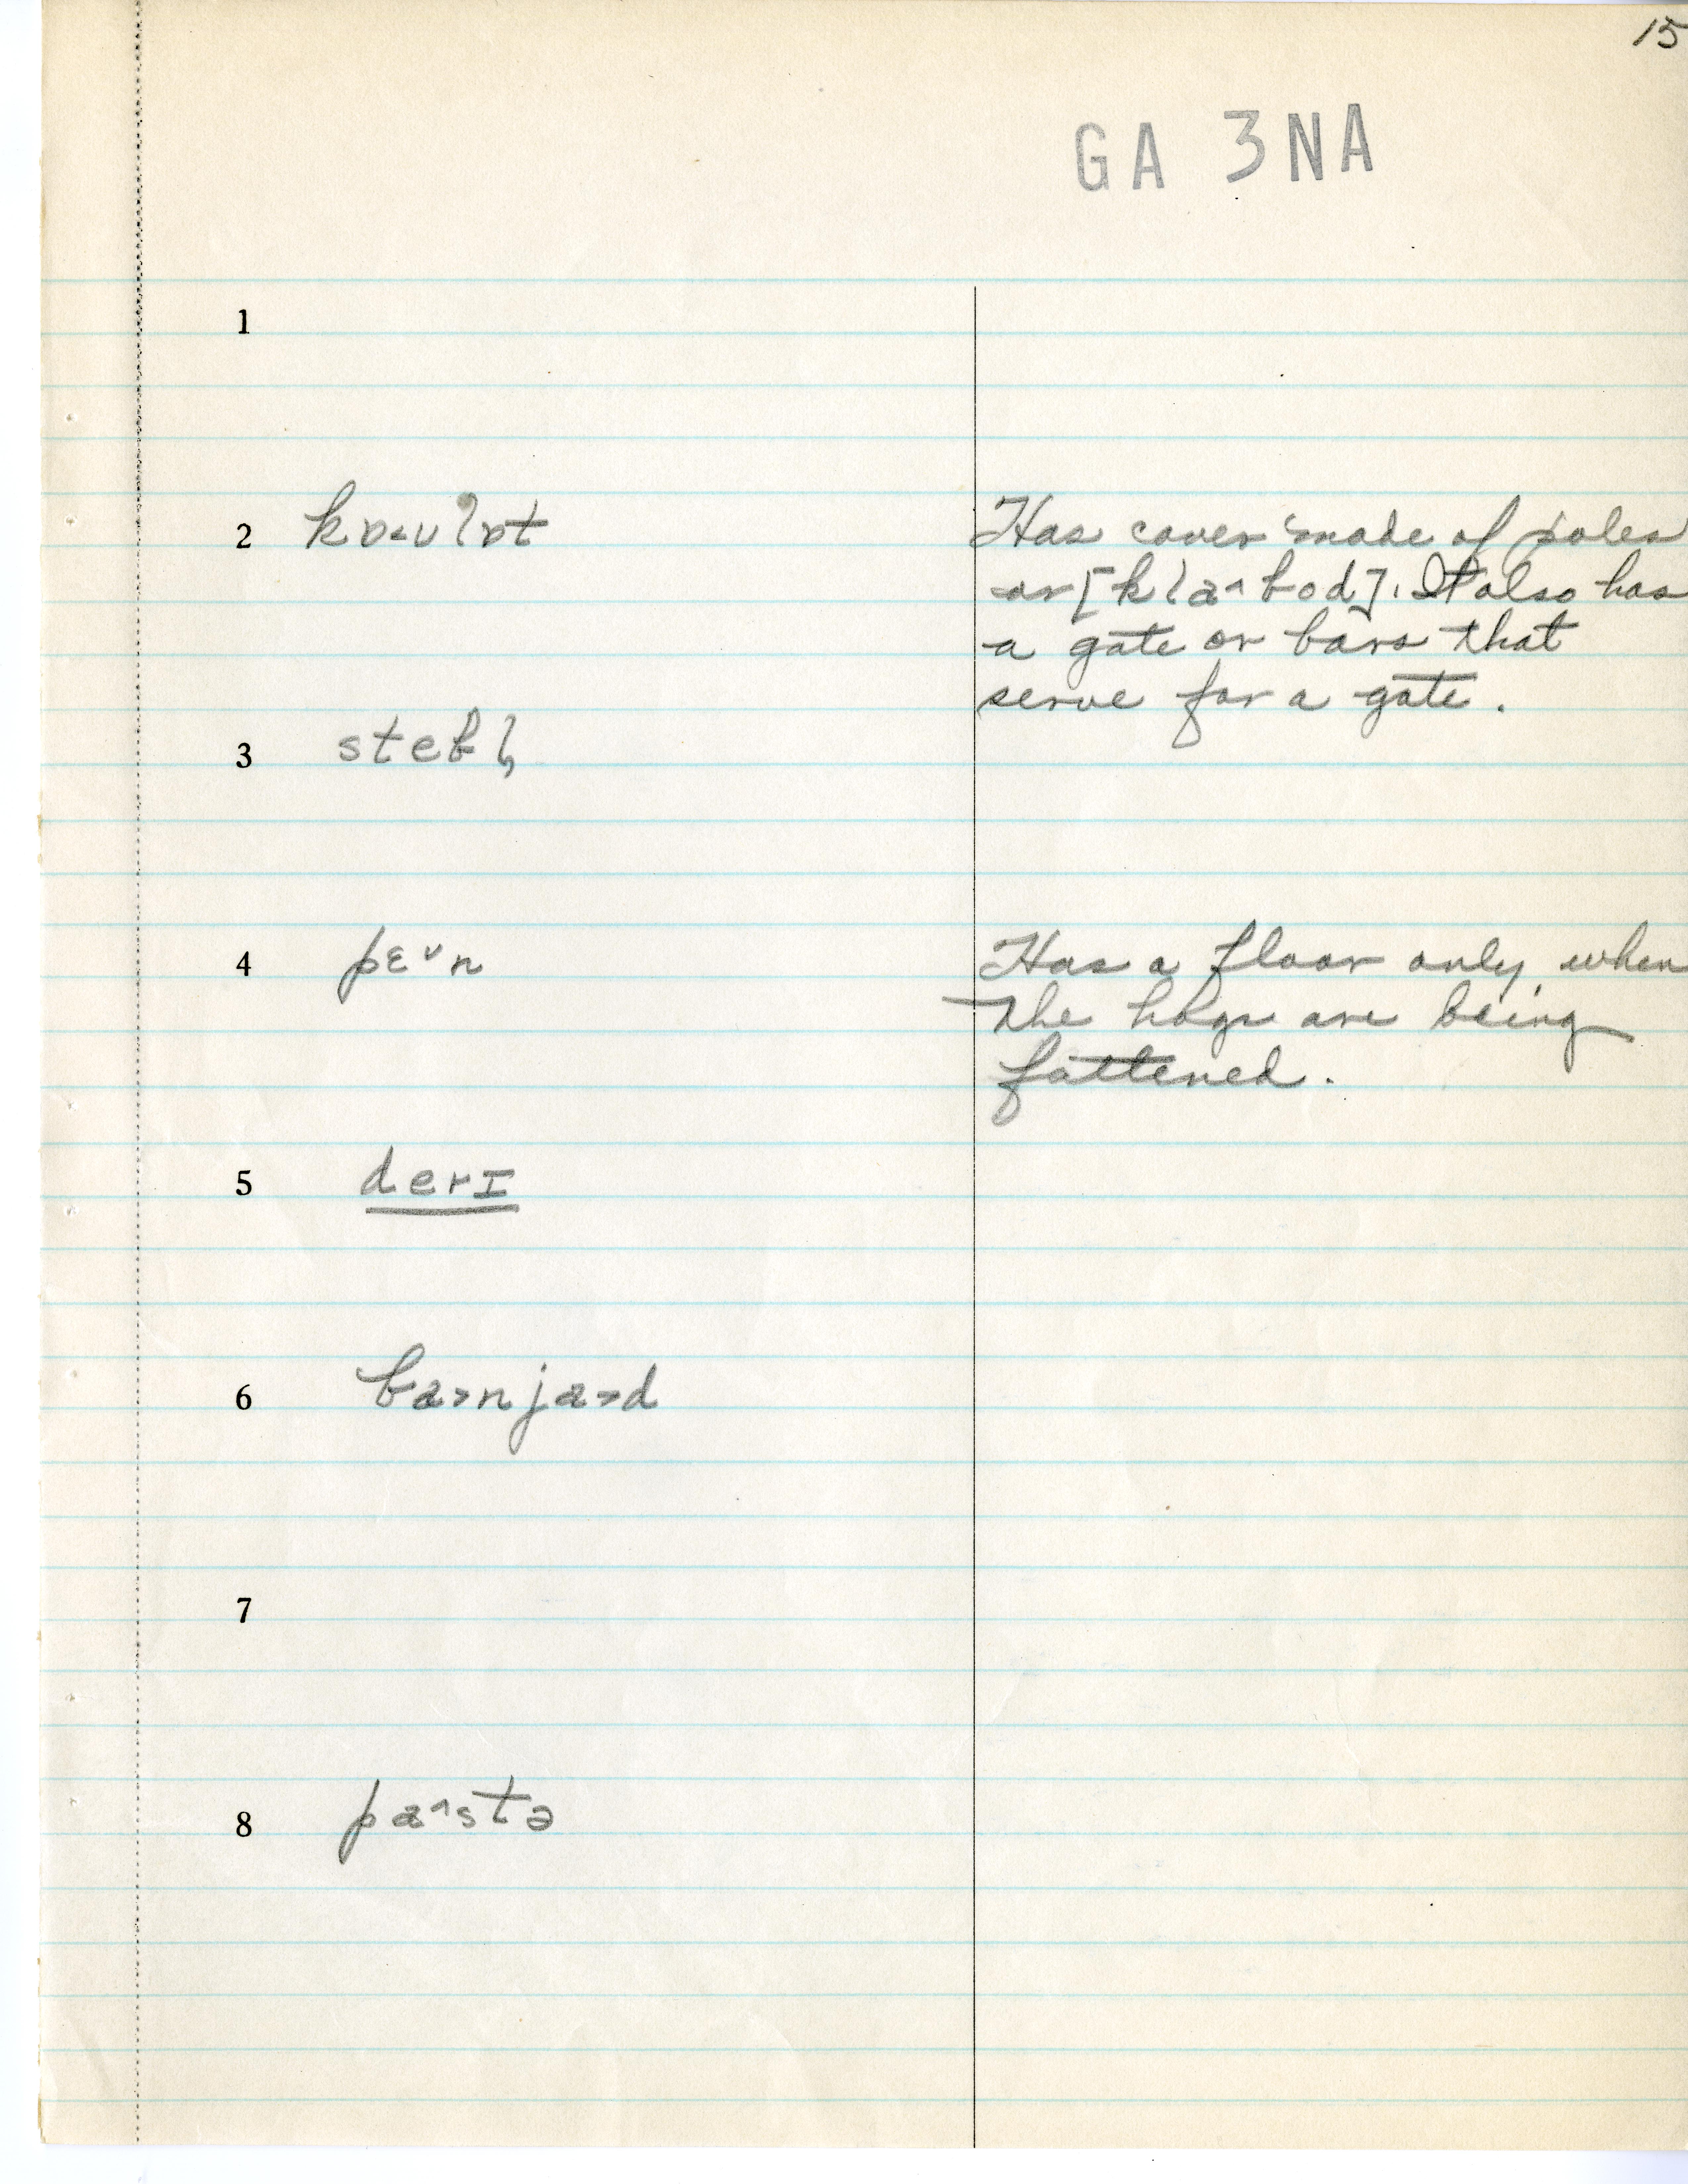 15
GA 3NA
1
2 kɒ˂ʊlɒt Has cover made of poles
or [kla^bod]. It also has
a gate or bars that
serve for a gate.
3 stebl̩
4 pɛ˅n Has a floor only when
the hogs are being
fattened.
5 derɪ
6 ba˃nja˃d
7
8 pa^stə